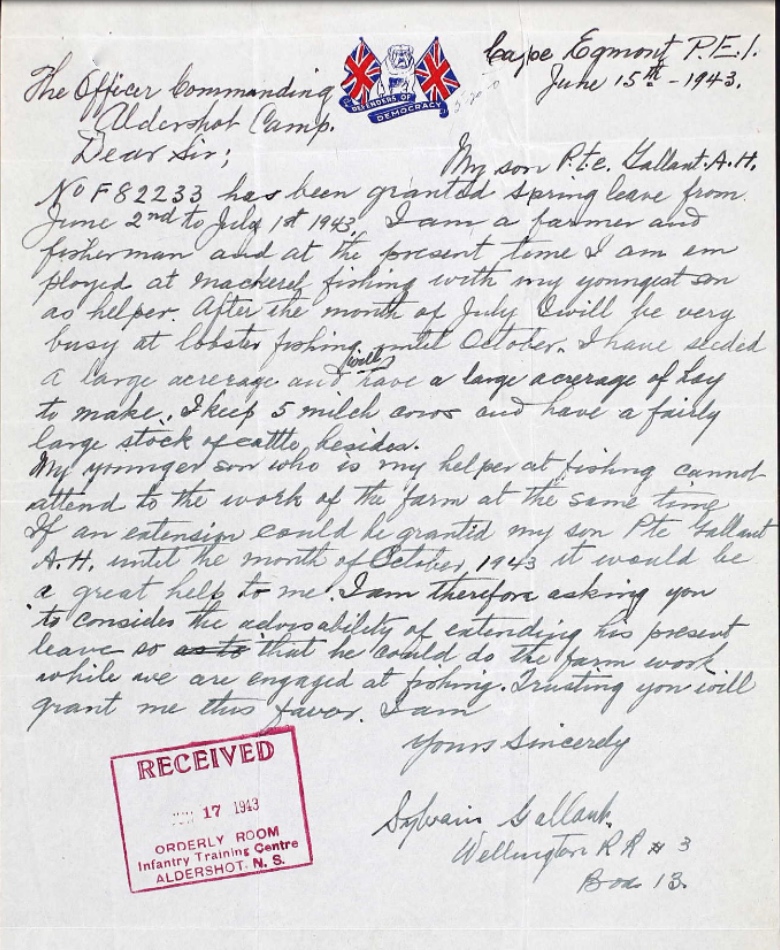 Cape Egmont P.E.I.
June 15th - 1943.
DEFENDERS OF
DEMOCRACY
The Officer Commanding
Aldershot Camp.
Dear Sir;
My son Pte. Gallant. A. H.
No F 82233 has been granted spring leave from
June 2nd to July 1st 1943. I am a farmer and
fisherman and at the present time I am em
ployed at mackerel fishing with my youngest son
as helper. After the month of July I will be very
busy at lobster fishing until October. I have seeded
a large acrerage and (will) have a large acrerage of hay
to make. I keep 5 milch cows and have a fairly
large stock of cattle besides.
My younger son who is my helper at fishing cannot
attend to the work of the farm at the same time
If an extension could be granted my son Pte Gallant
A.H. until the month of October, 1943 it would be
a great help to me. I am therefore asking you
to consider the advisability of extending his present
leave so as to that he could do the farm work
while we are engaged at fishing. Trusting you will
grant me this favor. I am
Yours Sincerely
Sylvain Gallant.
Wellington R R # 3
Box 13.
RECEIVED
17 1943
ORDERLY ROOM
Infantry Training Centre
ALDERSHOT. N. S.